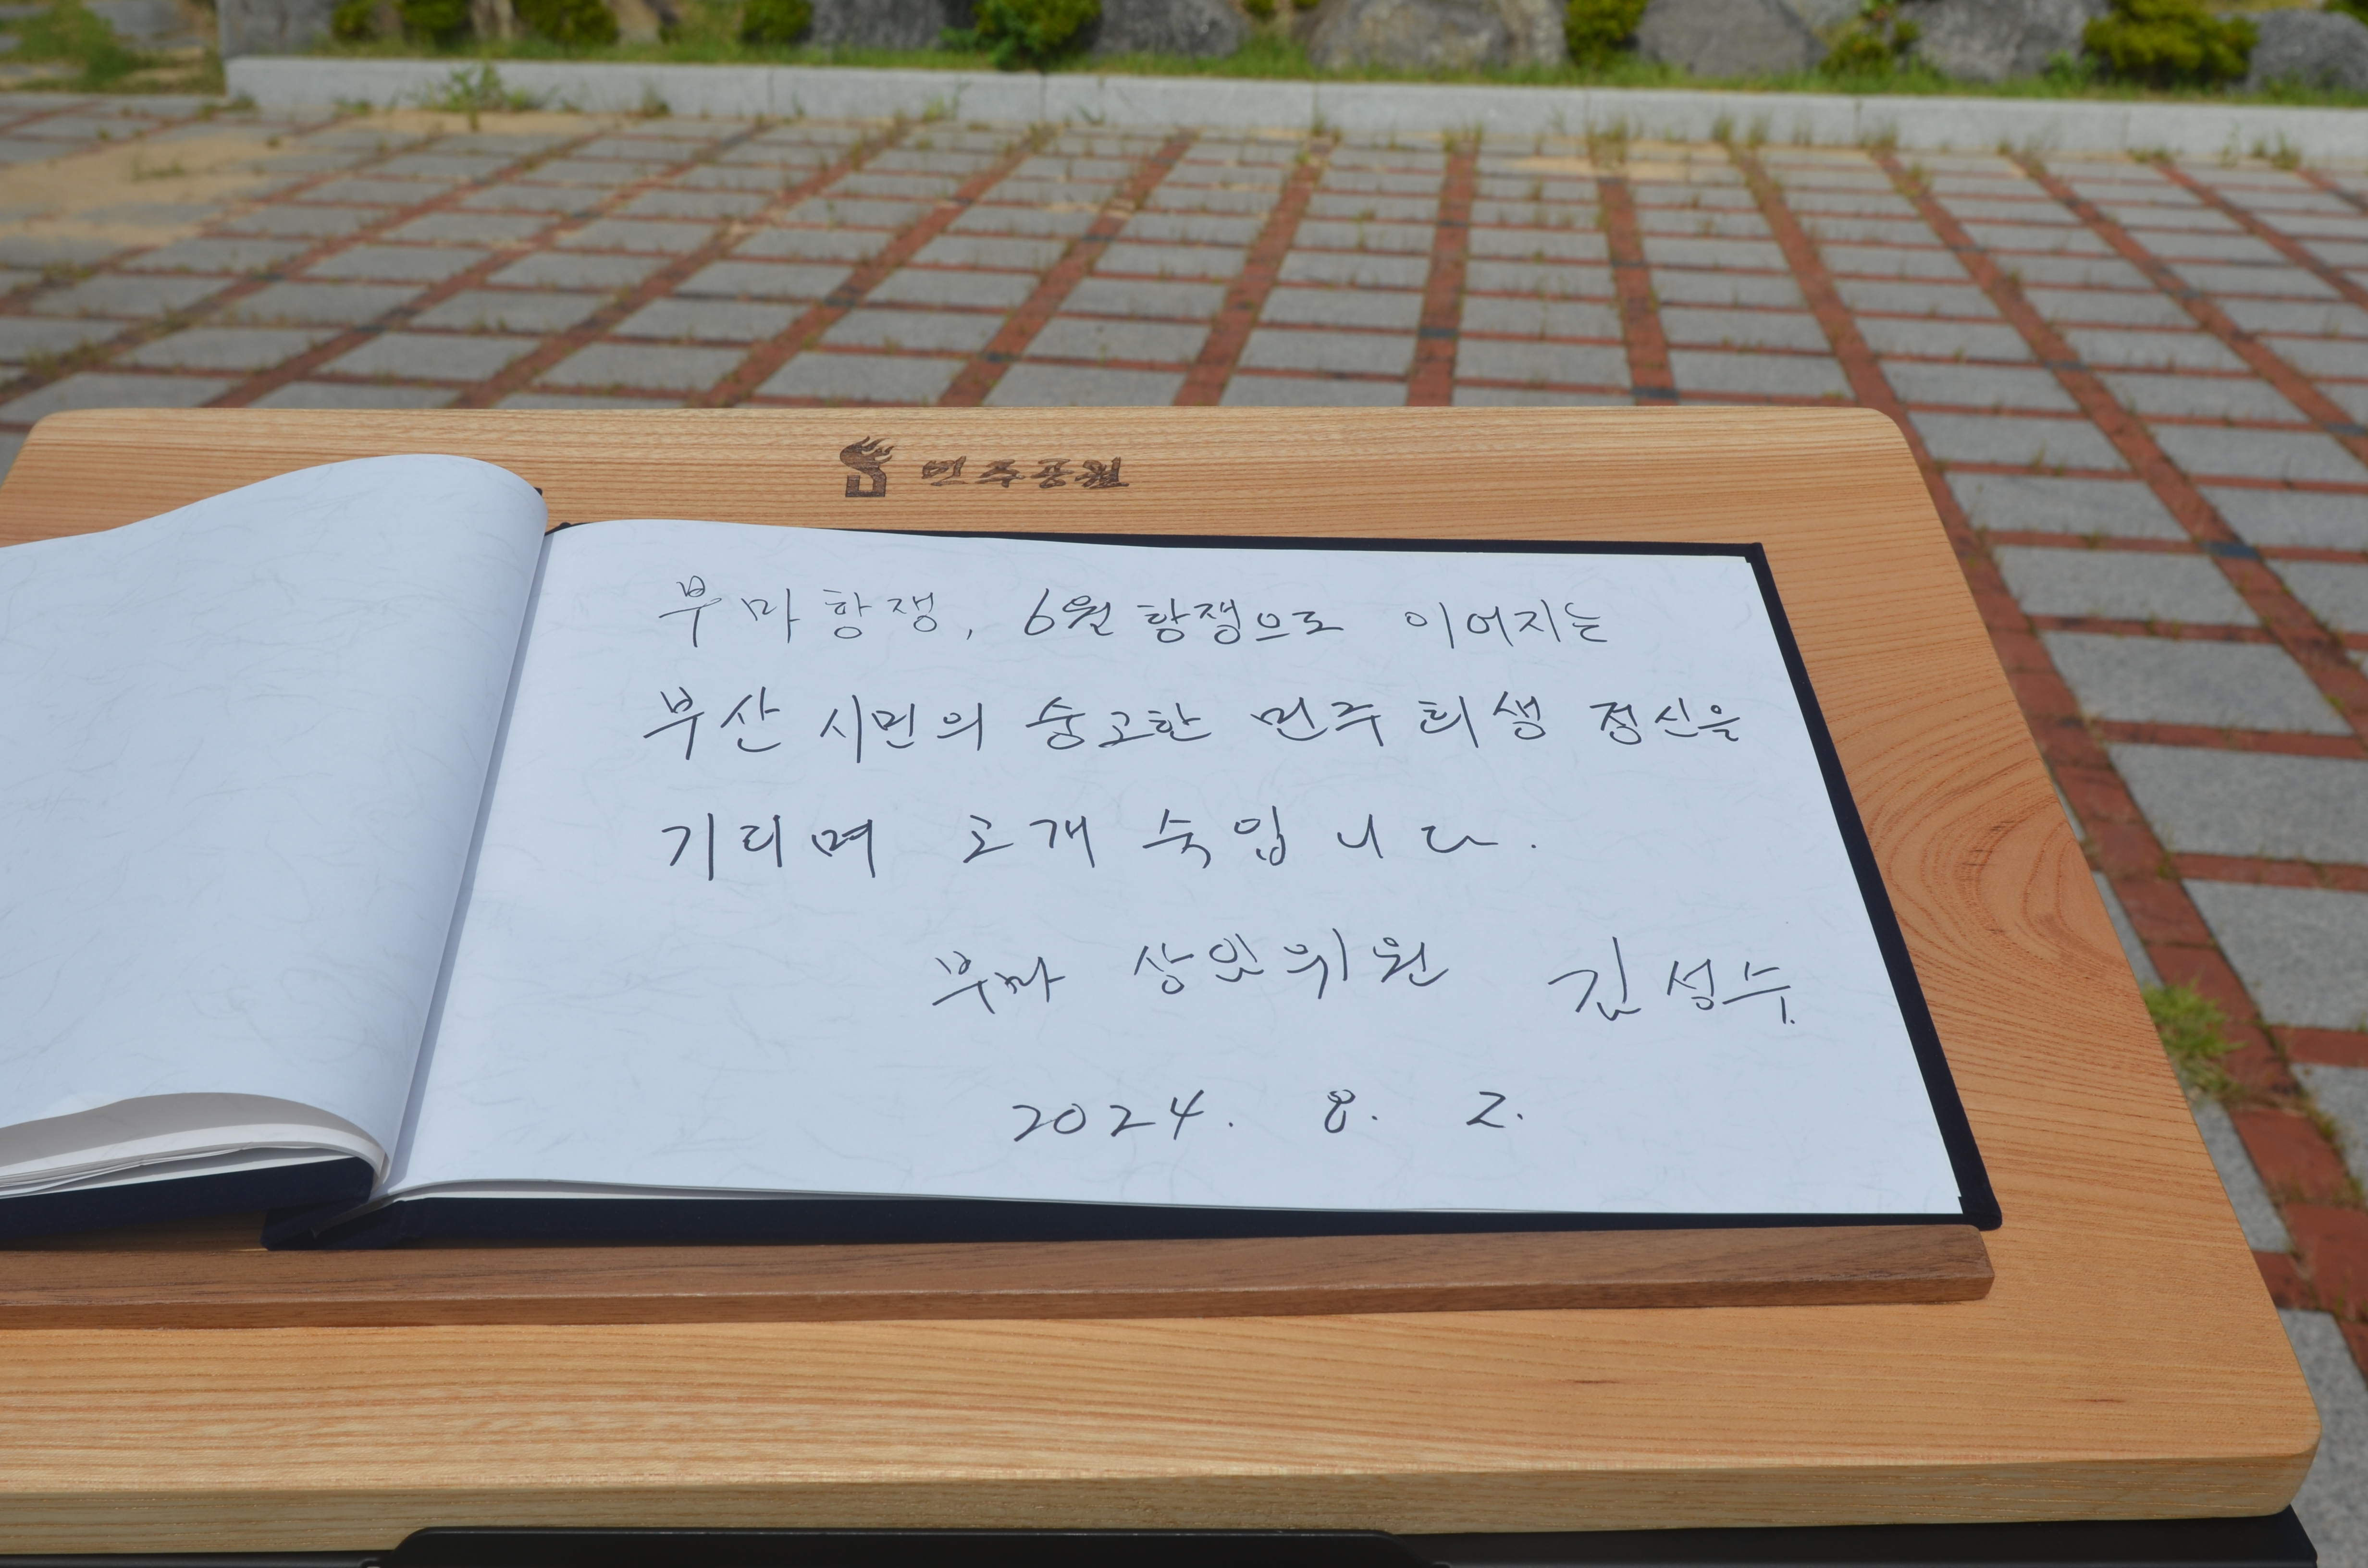 민주공원
부마항쟁, 6월 항쟁으로 이어지는
부산 시민의 숭고한 민주 희생 정신을
기리며 고개 숙입니다.
부마 상임위원 김성수
2024. 8. 2.